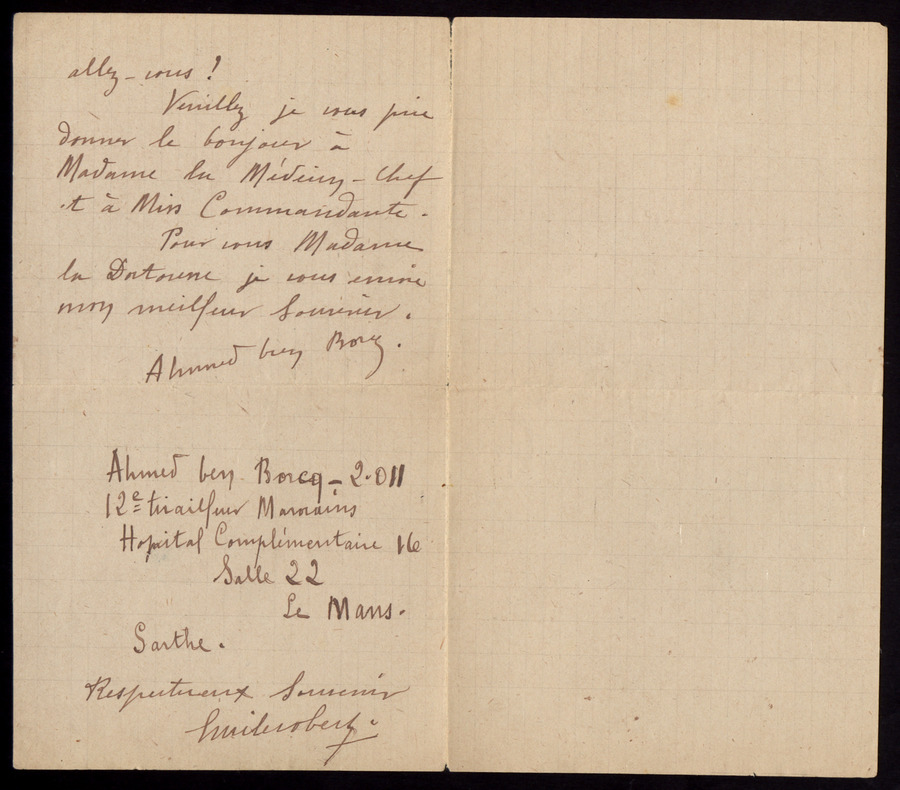 allez-vous !
Veuillez je vous prie
donner le bonjour à
Madame la Médecin-Chef
et à Miss Commandante.
Pour vous Madame
la Doctoresse je vous envoie
mon meilleur Souvenir.
Ahmed ben Borcq.
Ahmed ben Borcq - 2.011
12e tirailleur Marocains
Hopital Complémentaire 16
Salle 22
Le Mans.
Sarthe.
Respectueux Souvenir